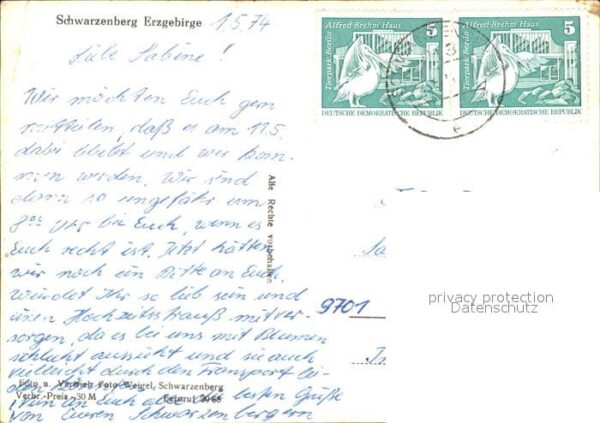 Schwarzenberg Erzgebirge
1.5.74
Liebe Sabine!
Wir möchten Euch gern
mitteilen, daß es am 11.5.
dabei bleibt und wir kom-
men werden. Wir sind
dann so ungefähr um
8⁰⁰ Uhr bei Euch, wenn es
Euch recht ist. Jetzt hätten
wir noch ein Bitte an Euch.
Würdet Ihr so lieb sein und
einen Hochzeitsstrauß mitver-
sorgen, da es bei uns mit Blumen
schlecht aussieht und sie auch
vielleicht durch den Transport lei-
den
Nun an Euch alle die besten Grüße
von Euren Schwarzenbergern
Foto u. Vertrieb Foto-Weigel, Schwarzenberg
Verbr.-Preis -,30 M
Fernruf
Alle Rechte vorbehalten
Alfred-Brehm-Haus
5
Tierpark Berlin
DEUTSCHE DEMOKRATISCHE REPUBLIK
Alfred-Brehm-Haus
5
Tierpark Berlin
DEUTSCHE DEMOKRATISCHE REPUBLIK
9701
privacy protection
Datenschutz